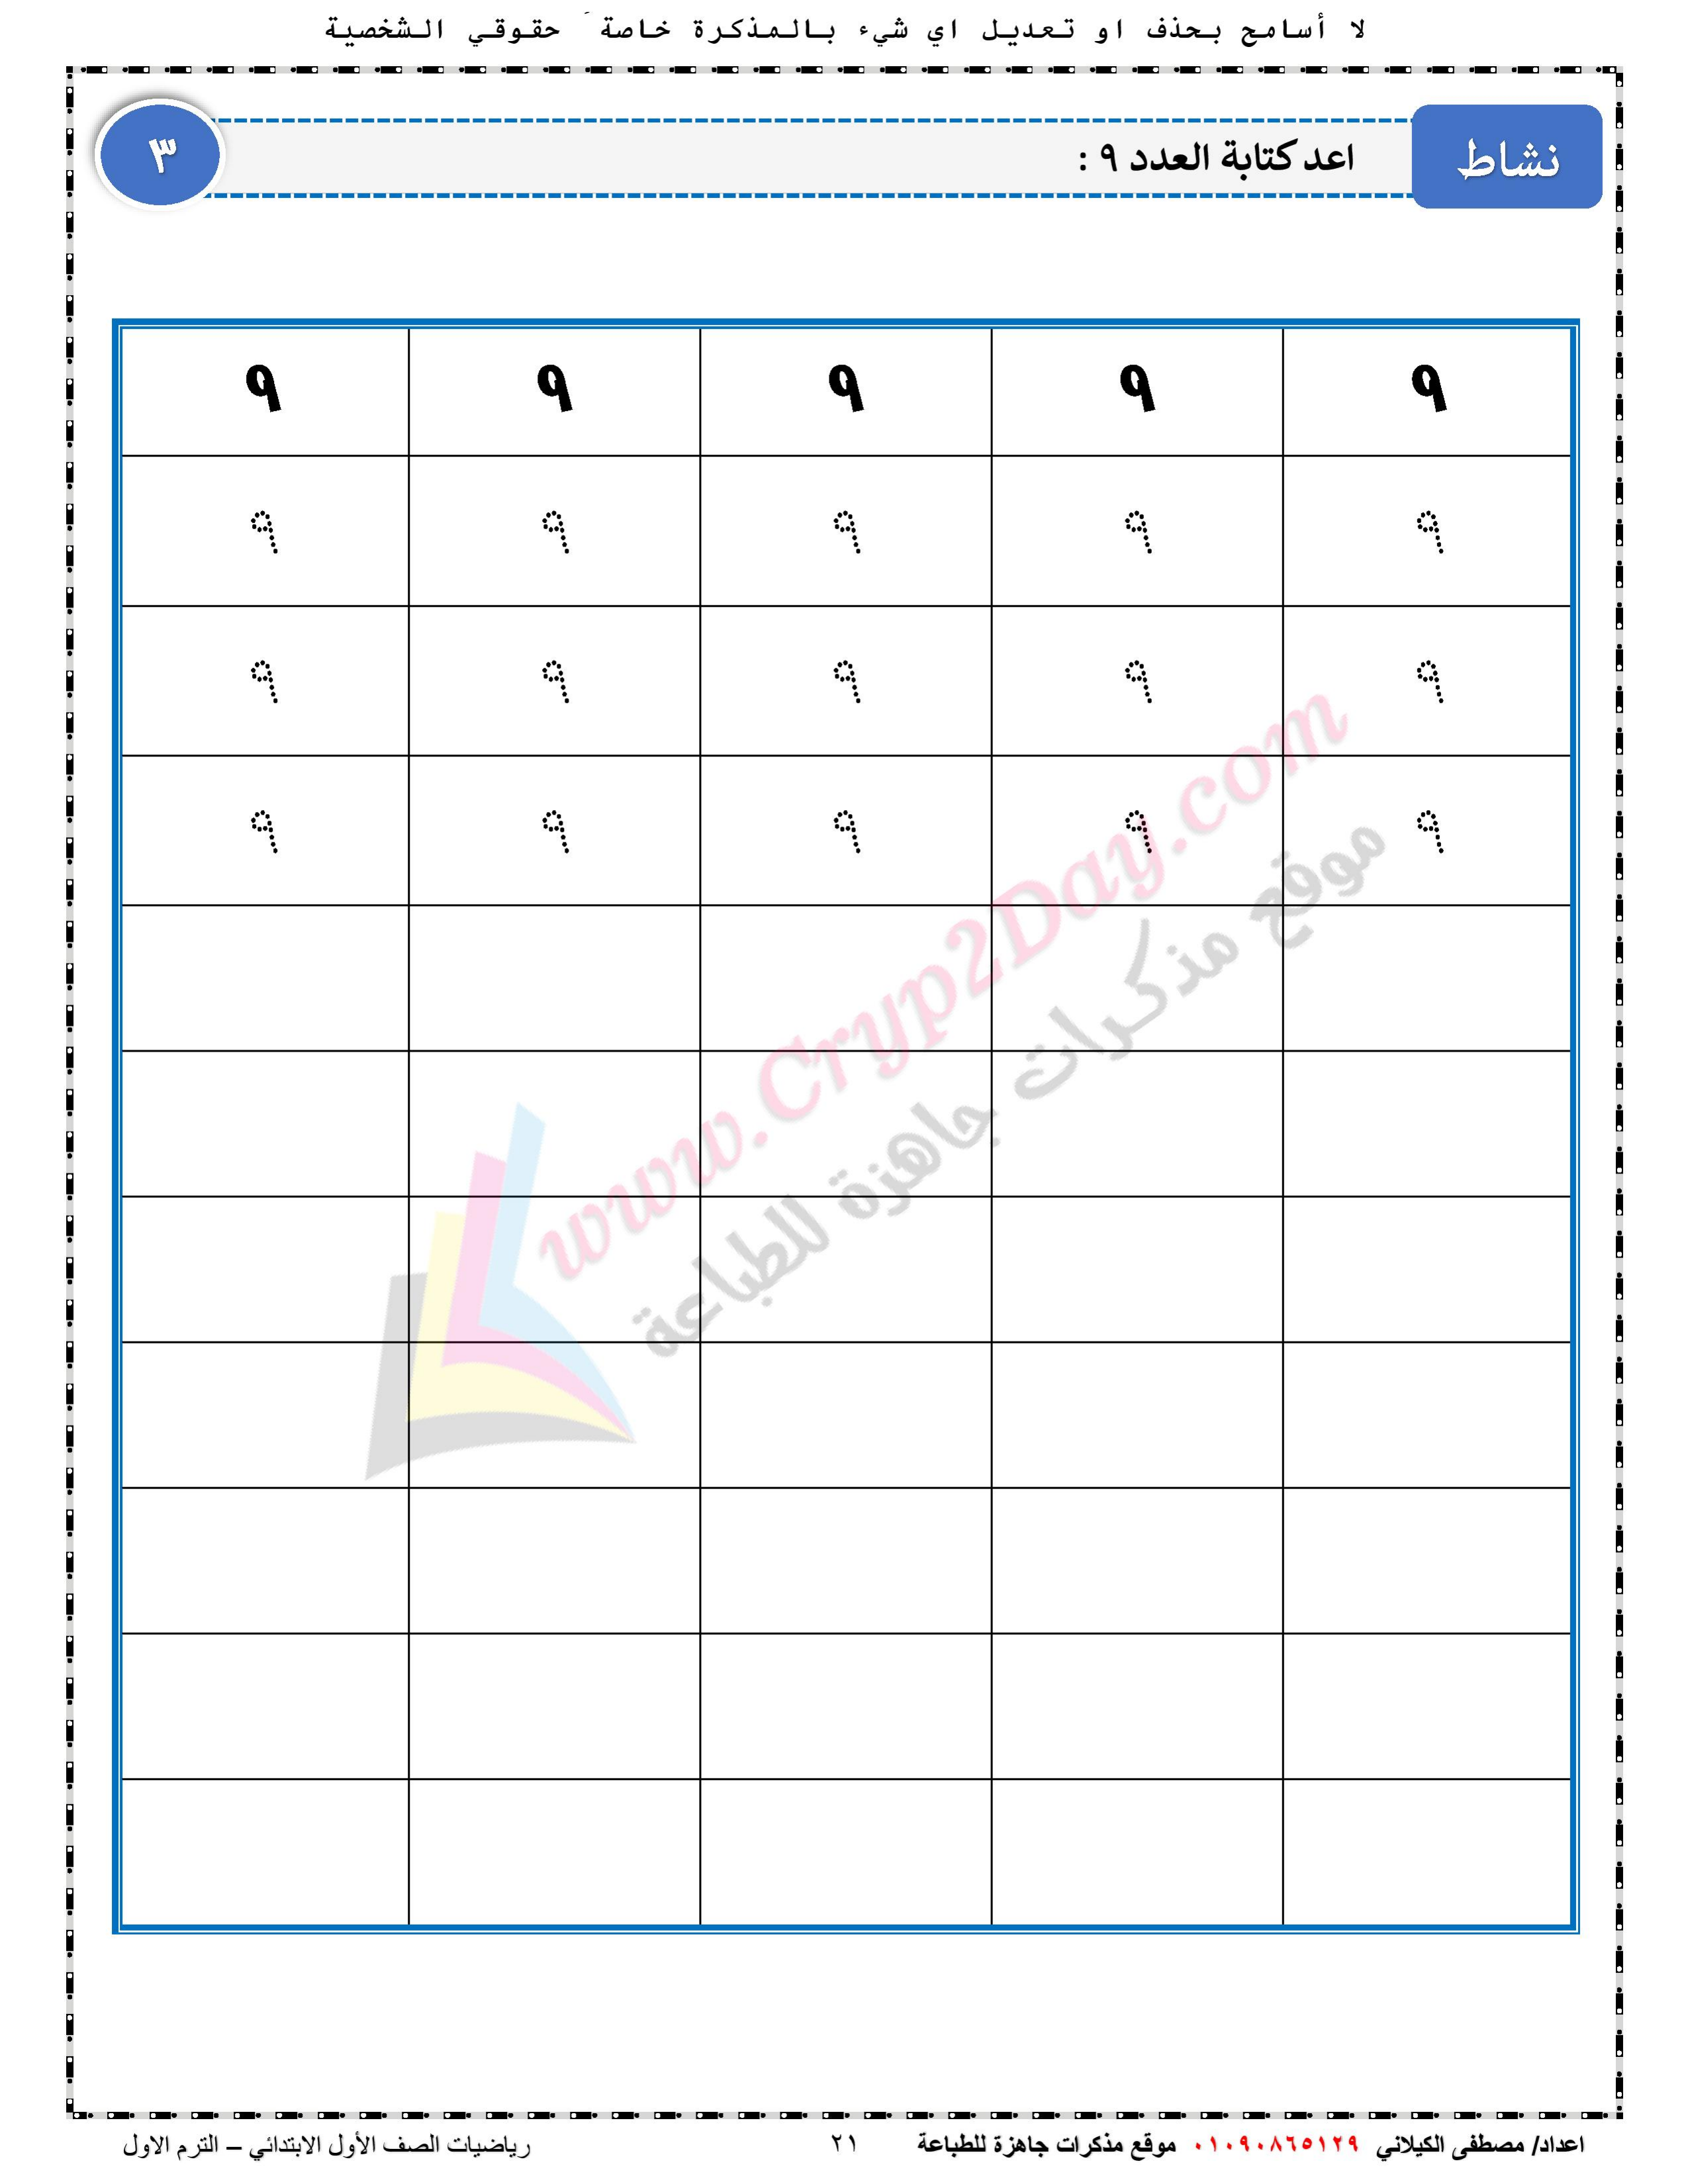 لا أسامح بحذف او تعديل اي شيء بالمذكرة خاصةً حقوقي الشخصية
نشاط
اعد كتابة العدد ٩ :
٣
٩ ٩ ٩ ٩ ٩
٩ ٩ ٩ ٩ ٩
٩ ٩ ٩ ٩ ٩
٩ ٩ ٩ ٩ ٩
www.Cryp2Day.com
موقع مذكرات جاهزة للطباعة
اعداد/ مصطفى الكيلاني ٠١٠٩٠٨٦٥١٢٩ موقع مذكرات جاهزة للطباعة ٢١ رياضيات الصف الأول الابتدائي – الترم الاول